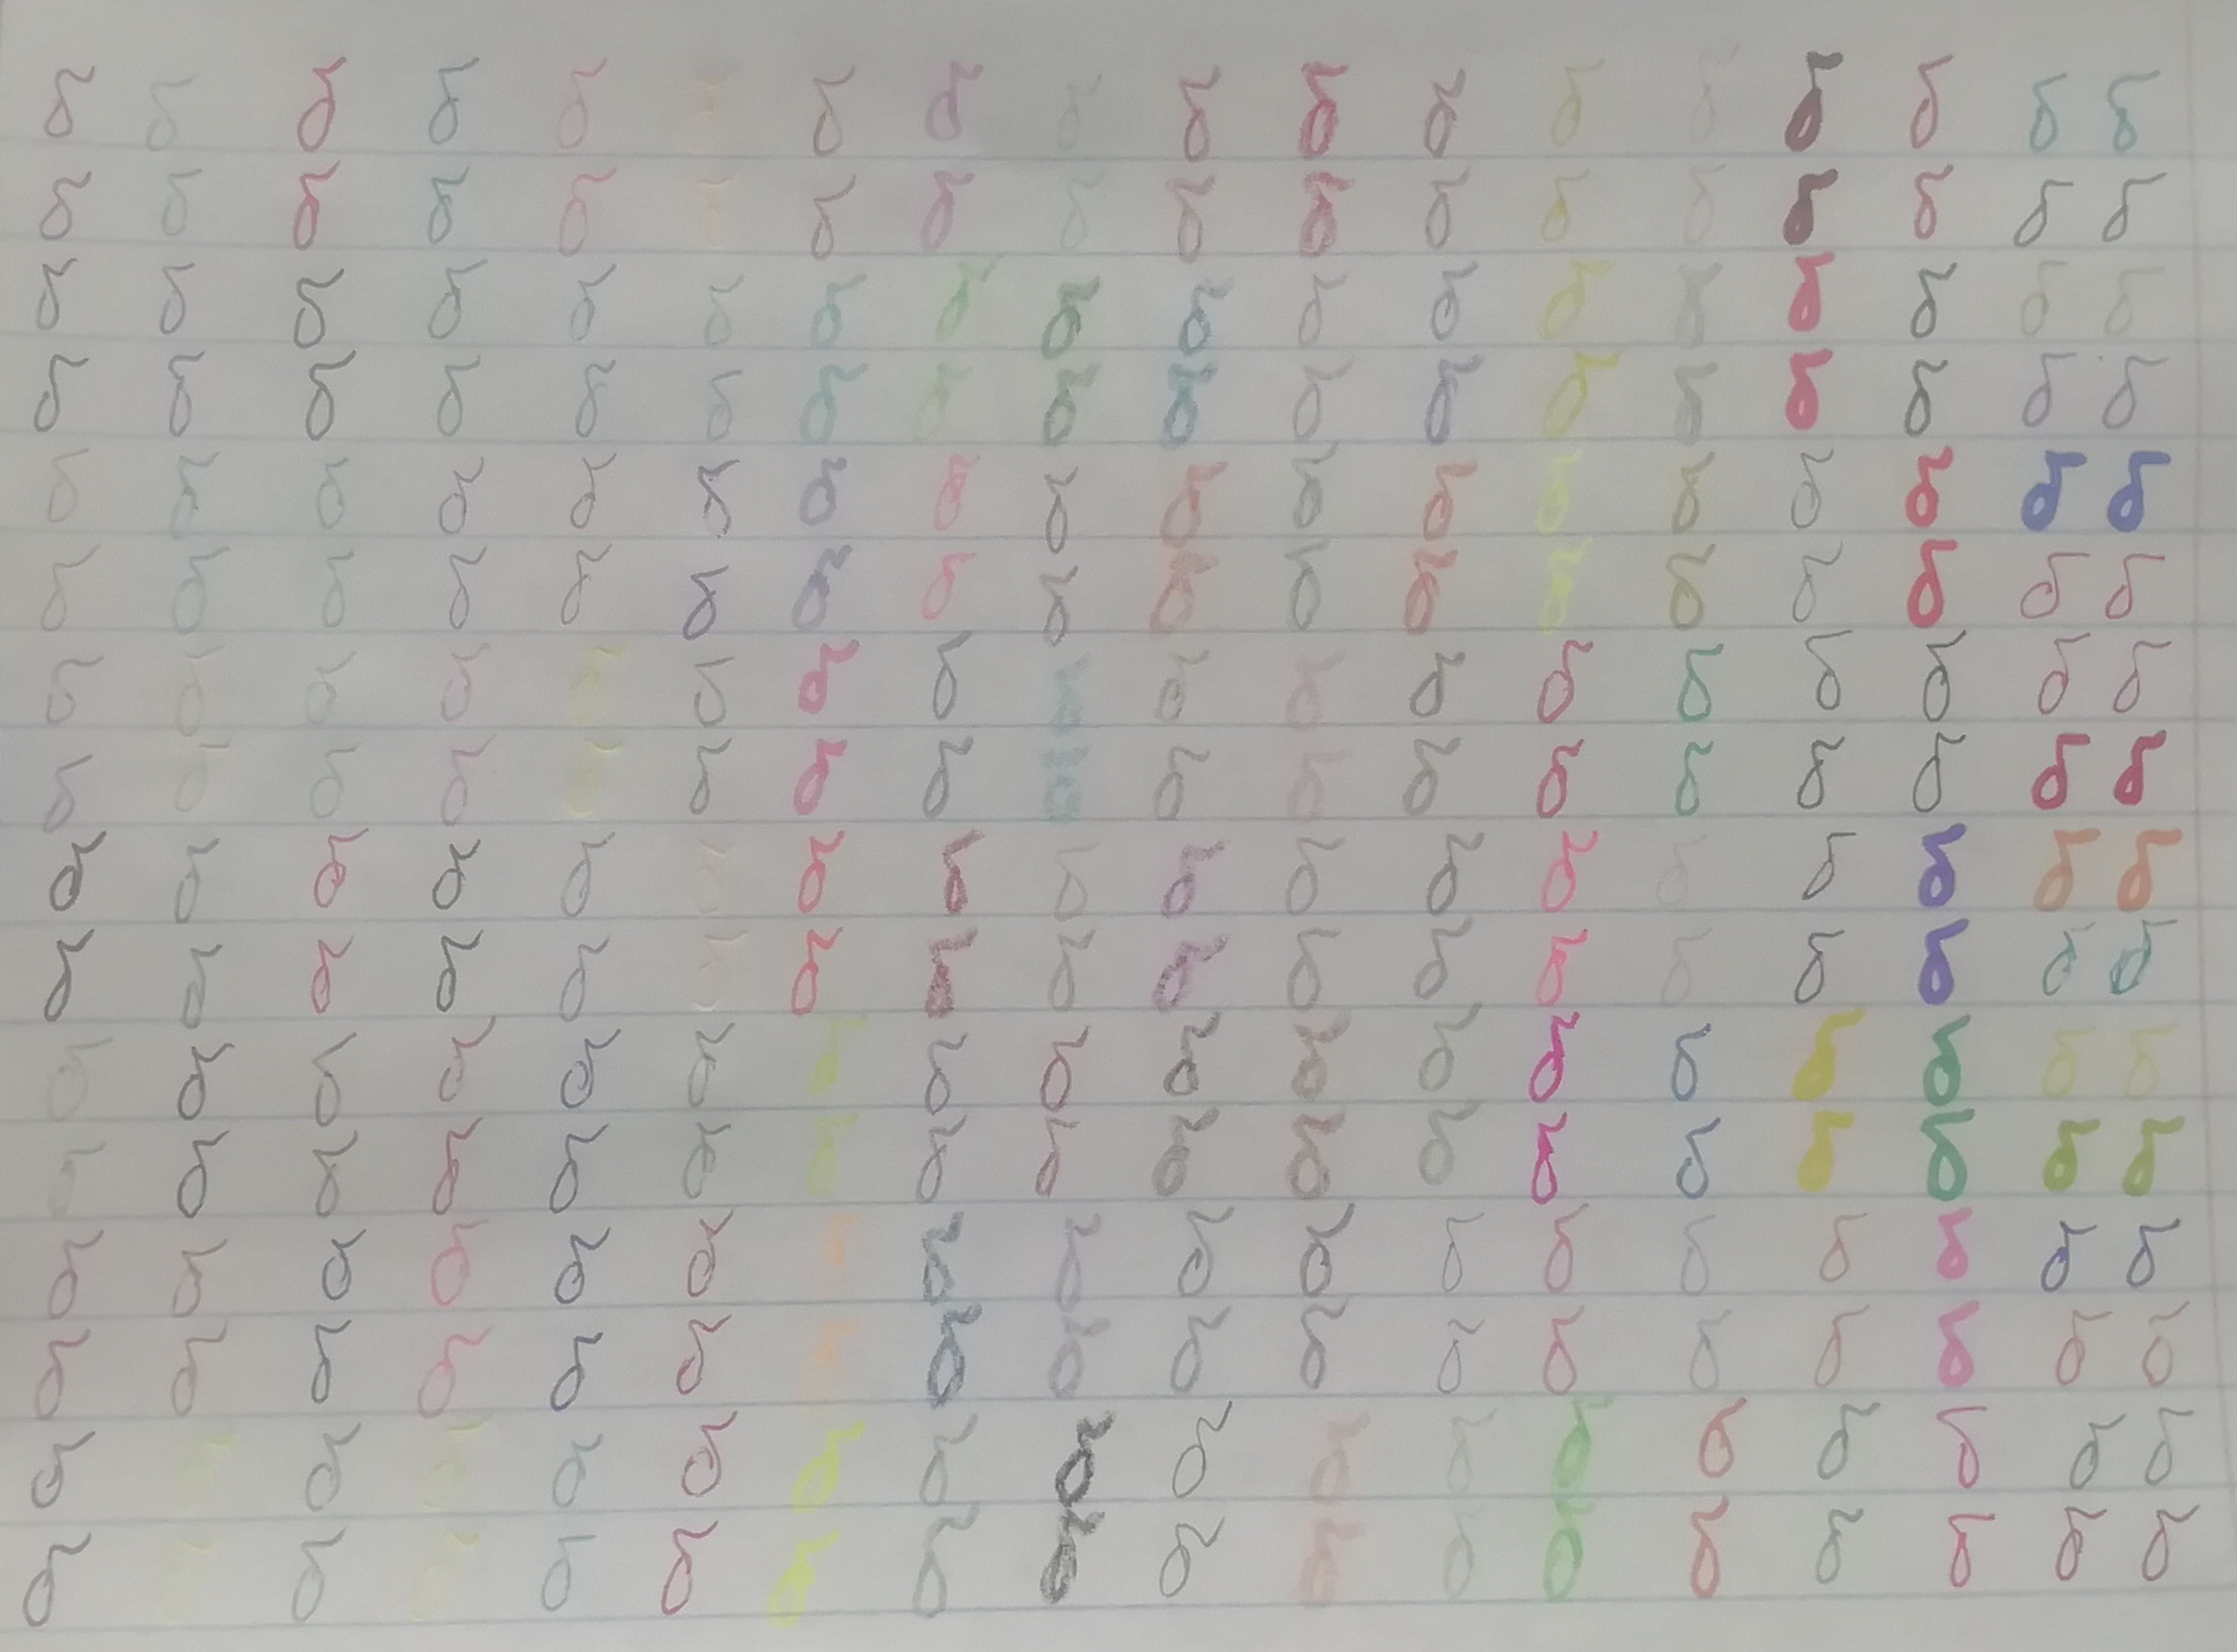 δ δ δ δ δ δ δ δ δ δ δ δ δ δ δ δ δ δ
δ δ δ δ δ δ δ δ δ δ δ δ δ δ δ δ δ δ
δ δ δ δ δ δ δ δ δ δ δ δ δ δ δ δ δ δ
δ δ δ δ δ δ δ δ δ δ δ δ δ δ δ δ δ δ
δ δ δ δ δ δ δ δ δ δ δ δ δ δ δ δ δ δ
δ δ δ δ δ δ δ δ δ δ δ δ δ δ δ δ δ δ
δ δ δ δ δ δ δ δ δ δ δ δ δ δ δ δ δ δ
δ δ δ δ δ δ δ δ δ δ δ δ δ δ δ δ δ δ
δ δ δ δ δ δ δ δ δ δ δ δ δ δ δ δ δ δ
δ δ δ δ δ δ δ δ δ δ δ δ δ δ δ δ δ δ
δ δ δ δ δ δ δ δ δ δ δ δ δ δ δ δ δ δ
δ δ δ δ δ δ δ δ δ δ δ δ δ δ δ δ δ δ
δ δ δ δ δ δ δ δ δ δ δ δ δ δ δ δ δ δ
δ δ δ δ δ δ δ δ δ δ δ δ δ δ δ δ δ δ
δ δ δ δ δ δ δ δ δ δ δ δ δ δ δ δ δ δ
δ δ δ δ δ δ δ δ δ δ δ δ δ δ δ δ δ δ